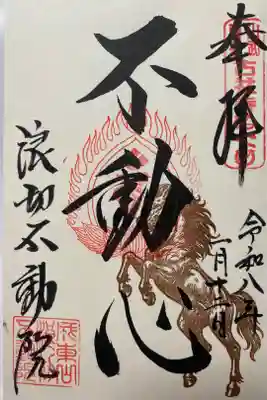 奉拝
令和八年
一月十二日
不動心
浪切不動院
成東山